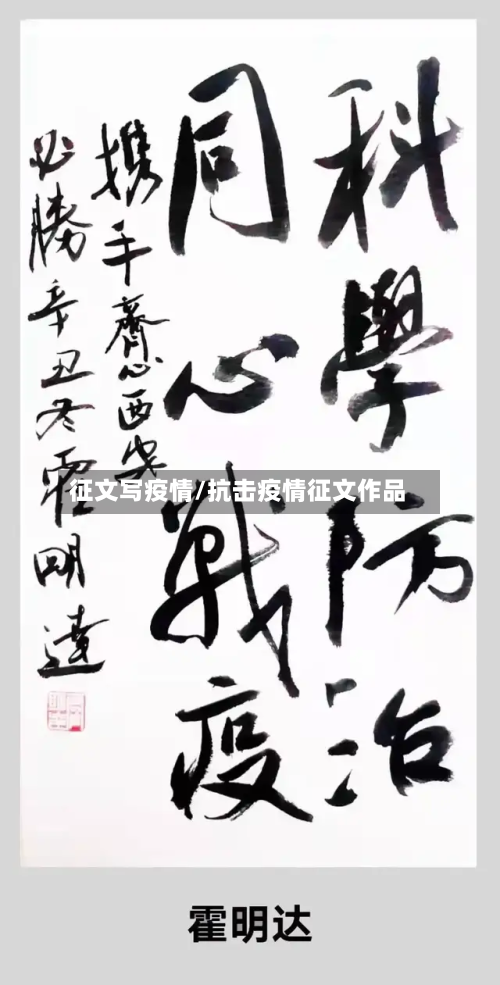 科學防治
同心戰疫
携手齊心西安
必勝辛丑冬霍明達
征文写疫情/抗击疫情征文作品
霍明达